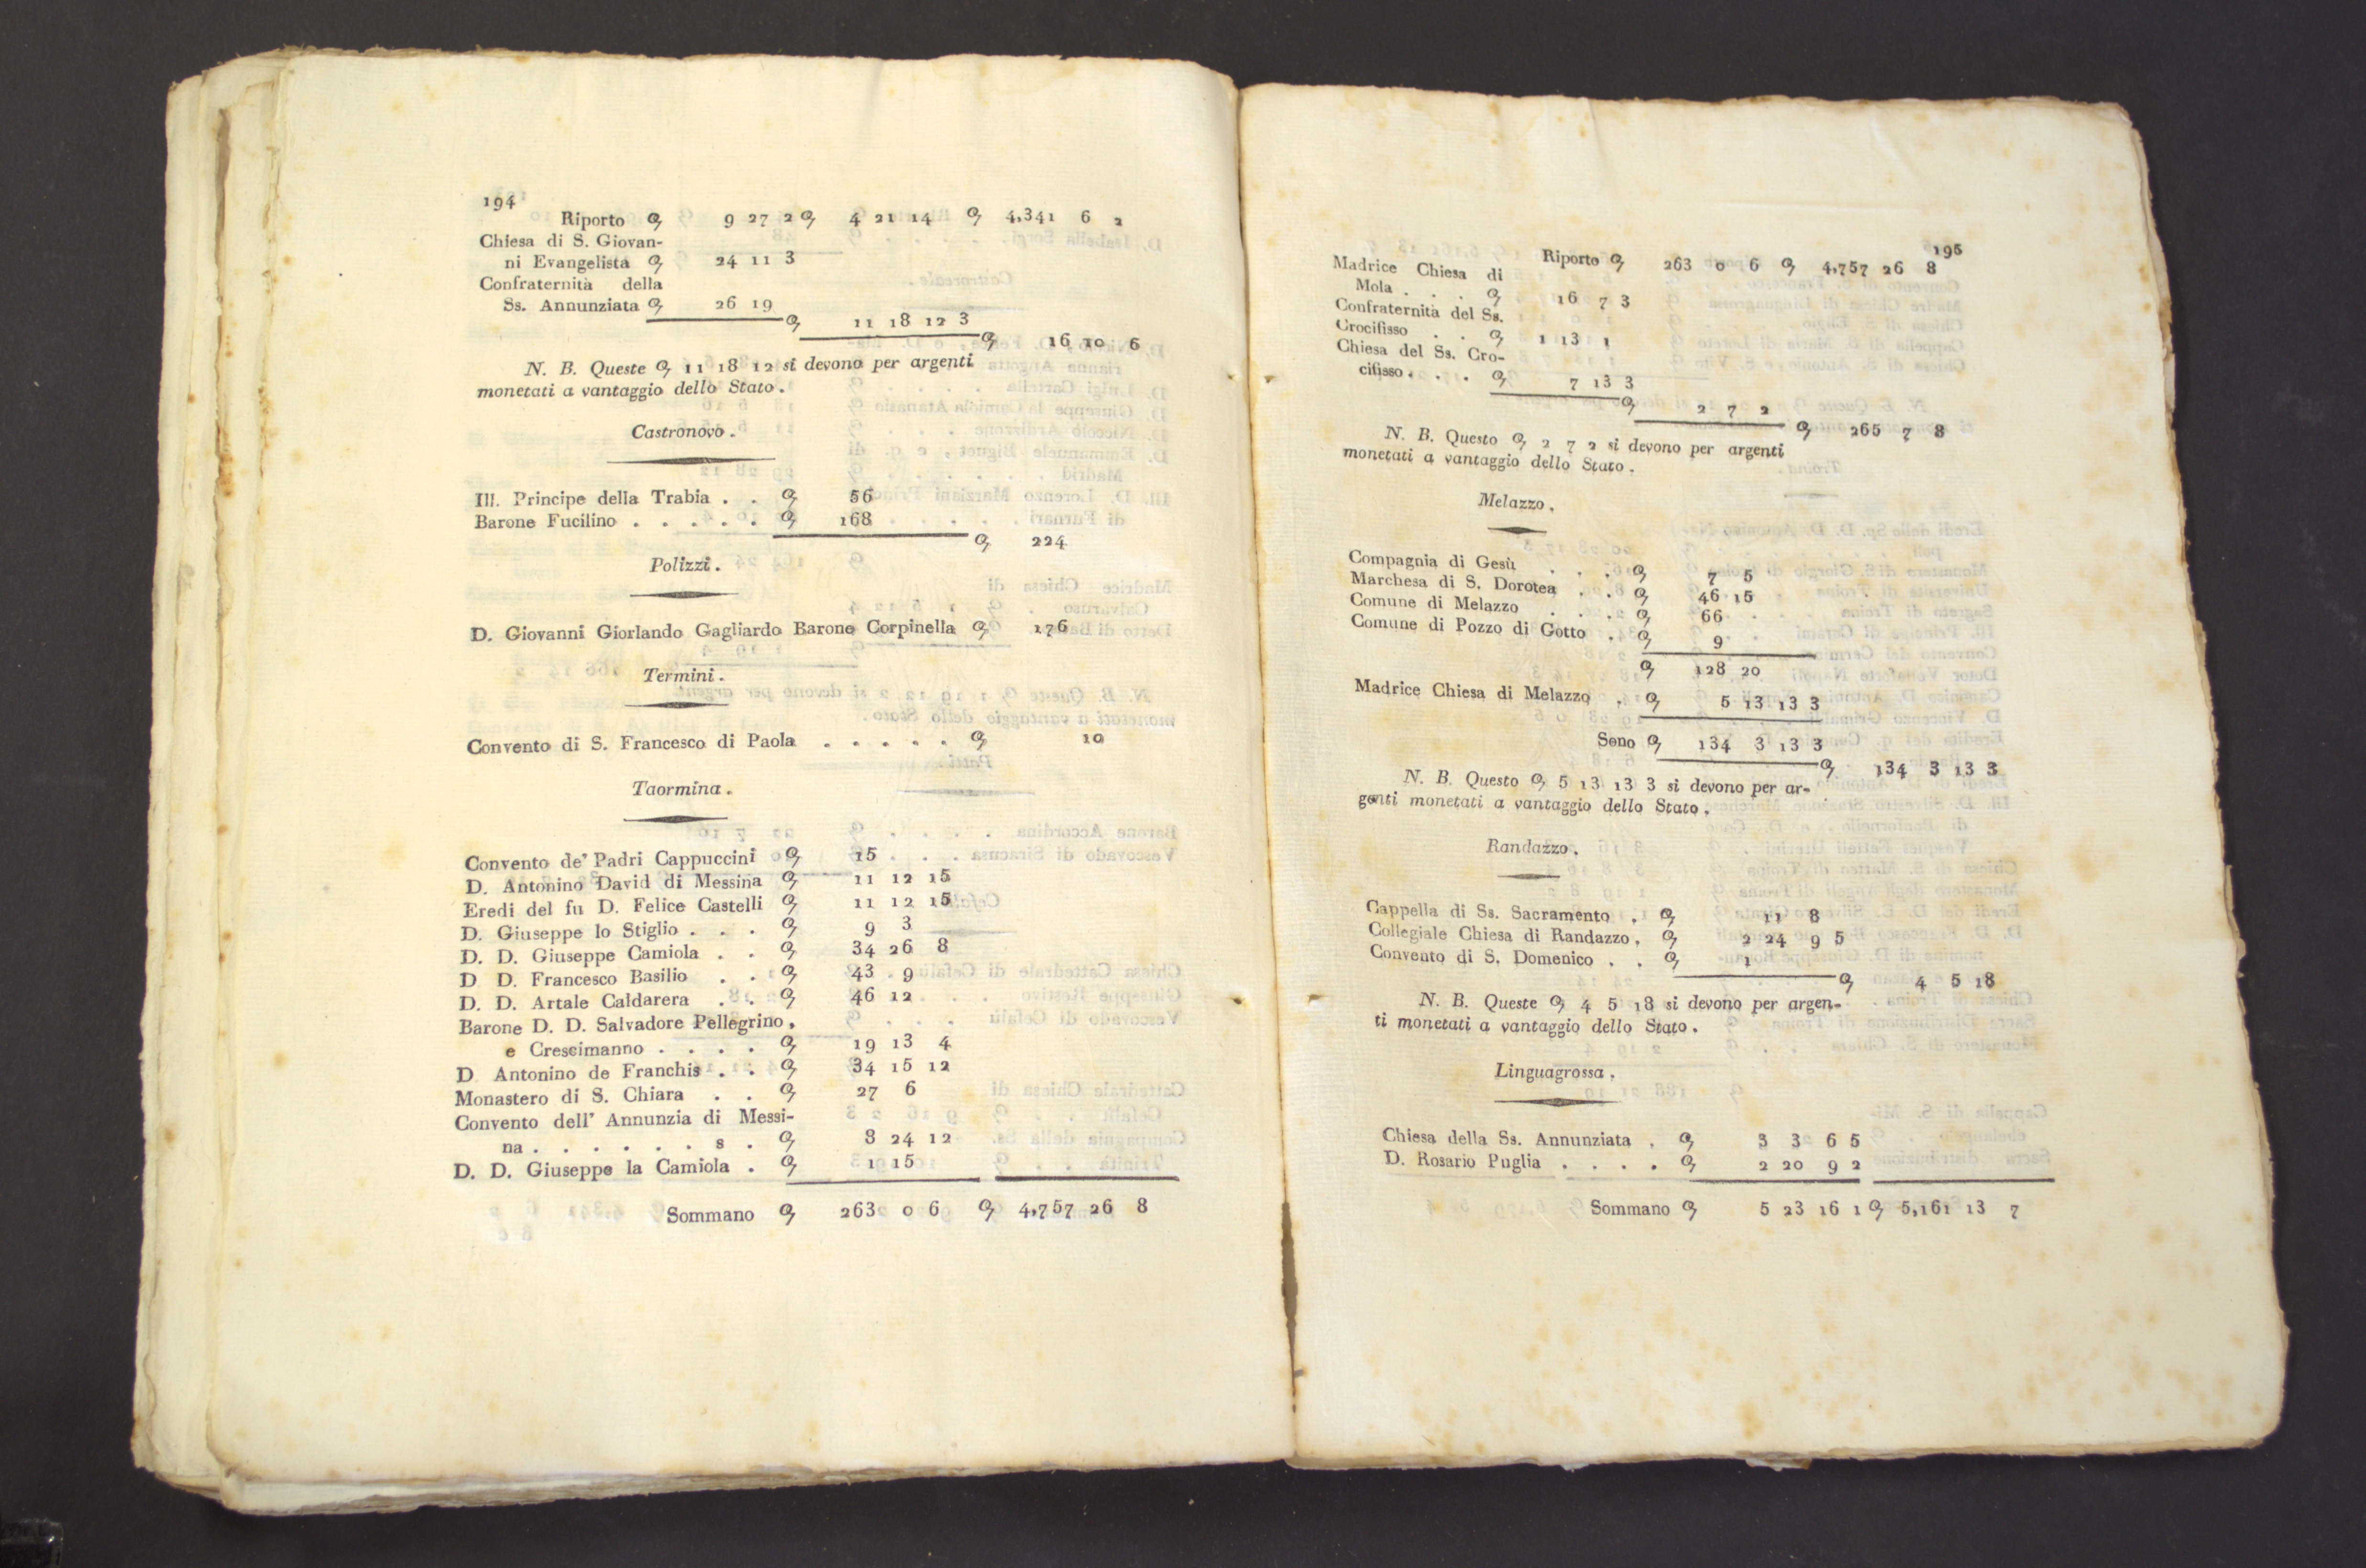 194
Riporto 9 27 2 4 21 14 4,341 6 2
Chiesa di S. Giovan-
ni Evangelista 24 11 3
Confraternità della
Ss. Annunziata 26 19
11 18 12 3
16 10 6
N. B. Queste 11 18 12 si devono per argenti
monetati a vantaggio dello Stato.
Castronovo.
Ill. Principe della Trabia . . 56
Barone Fucilino . . . . . 168
224
Polizzi.
D. Giovanni Giorlando Gagliardo Barone Corpinella 176
Termini.
Convento di S. Francesco di Paola . . . . . 10
Taormina.
Convento de' Padri Cappuccini 15
D. Antonino David di Messina 11 12 15
Eredi del fu D. Felice Castelli 11 12 15
D. Giuseppe lo Stiglio . . . 9 3
D. D. Giuseppe Camiola . . 34 26 8
D D. Francesco Basilio . . 43 9
D. D. Artale Caldarera . . 46 12
Barone D. D. Salvadore Pellegrino,
e Crescimanno . . . . 19 13 4
D Antonino de Franchis . . 34 15 12
Monastero di S. Chiara . . 27 6
Convento dell' Annunzia di Messi-
na . . . . . . s . 8 24 12
D. D. Giuseppe la Camiola . 1 15
Sommano 263 0 6 4,757 26 8
195
Riporto 263 0 6 4,757 26 8
Madrice Chiesa di
Mola . . . 16 7 3
Confraternità del Ss.
Crocifisso . . 1 13 1
Chiesa del Ss. Cro-
cifisso . . . 7 13 3
2 7 2
265 7 8
N. B. Questo 2 7 2 si devono per argenti
monetati a vantaggio dello Stato.
Melazzo.
Compagnia di Gesù . . . 7 5
Marchesa di S. Dorotea . . 46 15
Comune di Melazzo . . . 66
Comune di Pozzo di Gotto . 9
128 20
Madrice Chiesa di Melazzo . 5 13 13 3
Sono 134 3 13 3
134 3 13 3
N. B. Questo 5 13 13 3 si devono per ar-
genti monetati a vantaggio dello Stato.
Randazzo.
Cappella di Ss. Sacramento . 11 8
Collegiale Chiesa di Randazzo. 2 24 9 5
Convento di S. Domenico . . 1
4 5 18
N. B. Queste 4 5 18 si devono per argen-
ti monetati a vantaggio dello Stato.
Linguagrossa.
Chiesa della Ss. Annunziata . 3 3 6 5
D. Rosario Puglia . . . . 2 20 9 2
Sommano 5 23 16 1 5,161 13 7